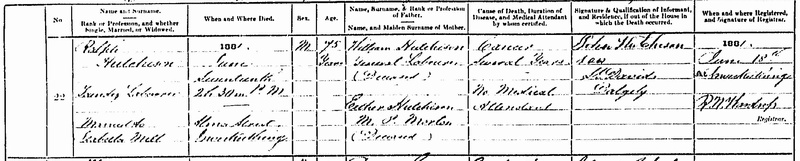 No
Name and Surname.
Rank or Profession, and whether Single, Married, or Widowed.
When and Where Died.
Sex.
Age.
Name, Surname, & Rank or Profession of Father.
Name, and Maiden Surname of Mother.
Cause of Death, Duration of Disease, and Medical Attendant by whom certified.
Signature & Qualification of Informant, and Residence, if out of the House in which the Death occurred.
When and where Registered, and Signature of Registrar.
22
Ralph
Hutchison
Laborer
Married to
Isabella Mill
June
2h. 30m. P M.
Inverkeithing
M.
75
Years
William Hutchison
General Labourer
(Deceased)
Esther Hutchison
M. S. Morton
(Deceased)
Cancer
Several Years
No Medical
Attendant
John Hutchison
son
St Davids
Dalgety
June 18th
At Inverkeithing
Registrar.